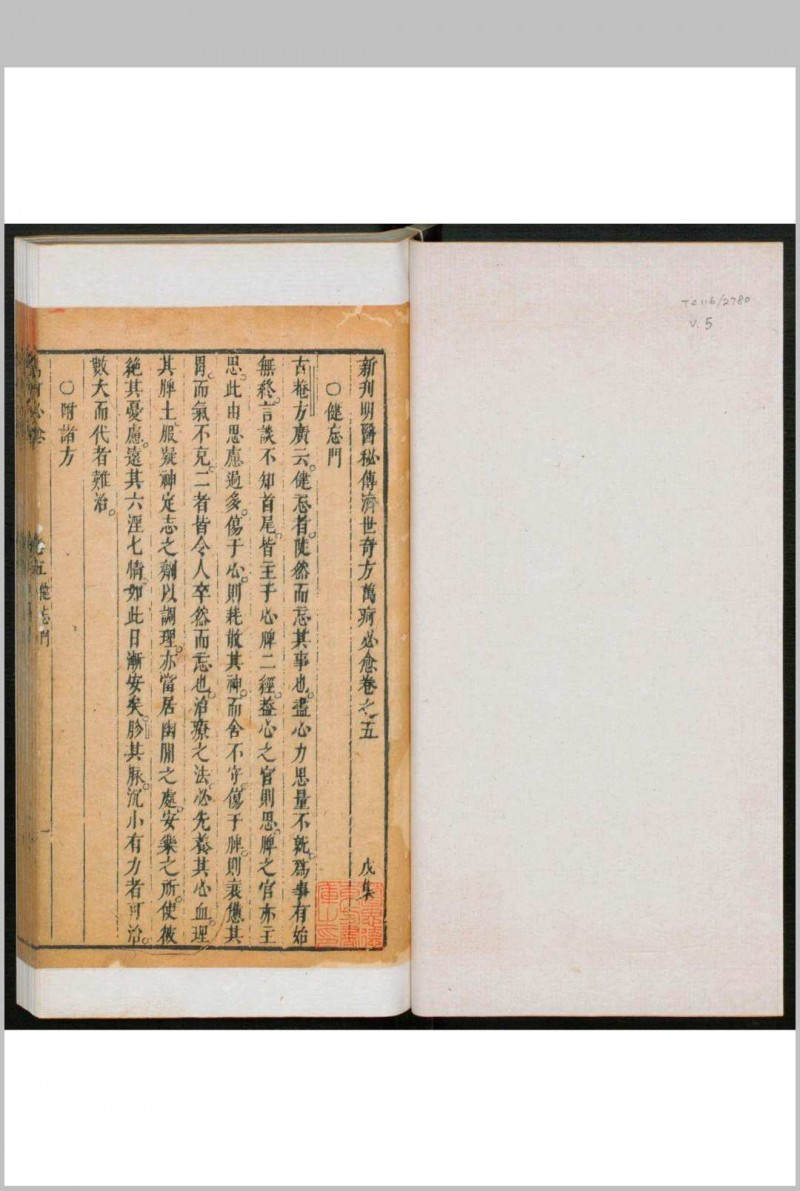 新刊明醫秘傳濟世奇方萬病必愈卷之五 戊集
〇健忘門
古菴方廣云。健忘者。陡然而忘其事也。盡心力思量不就。為事有始
無終。言談不知首尾。皆主于心脾二經。蓋心之官則思。脾之官亦主
思。此由思慮過多。傷于心。則耗散其神。而舍不守。傷于脾。則衰憊其
胃。而氣不充。二者皆令人卒然而忘也。治療之法。必先養其心血。理
其脾土。服凝神定志之劑以調理。亦當居幽閒之處。安樂之所。使彼
絕其憂慮。遠其六淫七情。如此日漸安矣。胗其脉。沉小有力者可治。
數大而代者難治。
〇附諸方
卷五 健忘門
TC116/2780
V. 5